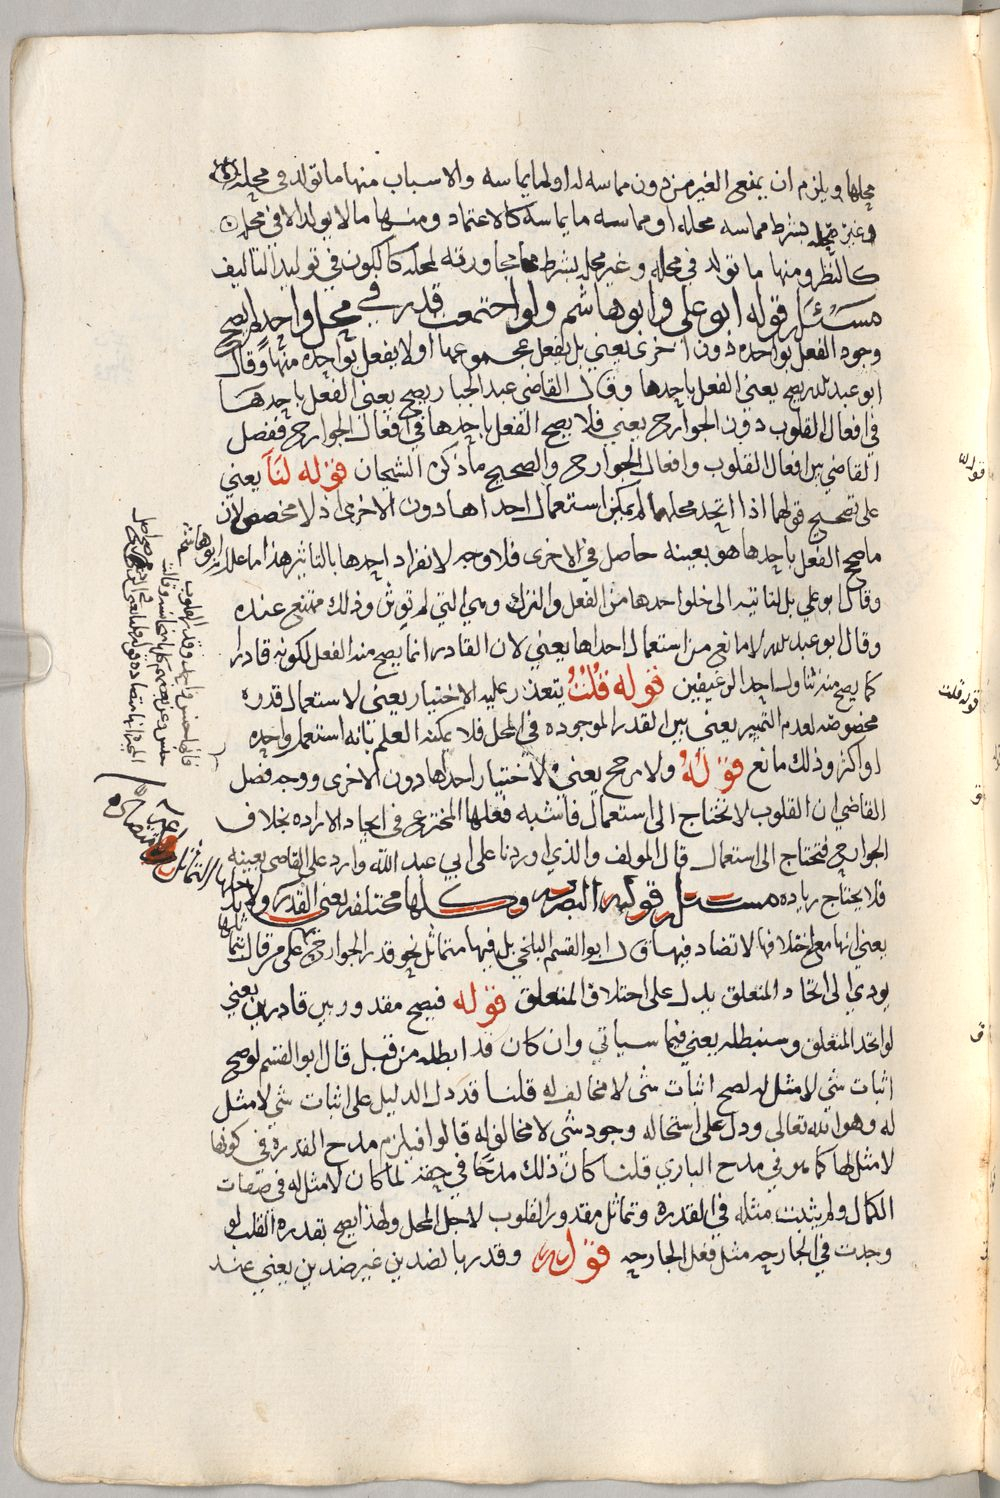 محلها ويلزم ان يمنع الغير من دون مماسه له او لما يماسه والاسباب منها ما تولد في محله
وغير محله بشرط مماسه محله او مماسه ما يماسه كالاعتماد ومنها ما لا يولد الا في محله
كالنظر ومنها ما تولد في محله وغير محله بشرط مجاورته لمحله كالكون في توليد التاليف
مسئلة قوله ابو علي وابو هاشم ولو اجتمعت قدر في محل واحد لم يصح
وجود الفعل بواحده دون اخرى يعني بل يفعل بمجموعها او لا يفعل بواحده منها وقال
ابو عبد الله يصح يعني الفعل باحدها وقال القاضي عبد الجبار يصح يعني الفعل باحدها
في افعال القلوب دون الجوارح يعني فلا يصح الفعل باحدها في افعال الجوارح ففصل
القاضي بين افعال القلوب وافعال الجوارح والصحيح ما ذكره الشيخان قوله لنا يعني
على تصحيح قولهما اذا اتحد محلهما لم يمكن استعمال احداها دون الاخرى اذ لا مخصص لان
ما صحح الفعل باحدها هو بعينه حاصل في الاخرى فلا وجه لانفراد احدها بالتاثير هذا ما علل به ابو هاشم
وقال ابو علي بل لتاديته الى خلو احدها من الفعل والترك وهي التي لم توثر وذلك ممتنع عنده
وقال ابو عبد الله لا مانع من استعمال احداها يعني لان القادر انما يصح منه الفعل لكونه قادرا
كما يصح منه تناول احد الرغيفين قوله قلت يتعذر عليه الاختيار يعني لاستعمال قدره
مخصوصه لعدم التمييز يعني بين القدر الموجوده في المحل فلا يمكنه العلم بانه استعمل واحده
او اكثر وذلك مانع قوله ولا مرجح يعني لاختيار احداها دون الاخرى ووجه فصل
القاضي ان القلوب لا تحتاج الى استعمال فاشبه فعلها المخترع في ايجاد الاراده بخلاف
الجوارح فتحتاج الى استعمال قال المولف والذي اوردنا على ابي عبد الله وارد على القاضي بعينه
فلا يحتاج زياده مسئلة قوله البصريه وكلها مختلفه يعني القدر ولا تضاد
يعني انها مع اختلافها لا تضاد فيها وقال ابو القسم البلخي بل فيها متماثل نحو قدر الجوارح لنا على من قال بتماثلها
يودي الى اتحاد المتعلق يدل على اختلاف المتعلق قوله فيصح مقدور بين قادرين يعني
لو اتحد المتعلق وسنبطله يعني فيما سياتي وان كان قد ابطله من قبل قال ابو القسم لو صح
اثبات شي لا مثل له لصح اثبات شي لا مخالف له قلنا قد دل الدليل على اثبات شي لا مثل
له وهو الله تعالى ودل على استحاله وجود شي لا مخالف له قالوا فيلزم مدح القدره في كونها
لا مثل لها كما هو في مدح الباري قلنا كان ذلك مدحا في حقه لما كان لا مثل له في صفات
الكمال ولم يثبت مثله في القدره وتماثل مقدور القلوب لاجل المحل ولهذا يصح بقدره القلب لو
وجدت في الجارحه مثل فعل الجارحه قوله وقدرها لضدين غير ضدين يعني عند
قوله
قوله قلت